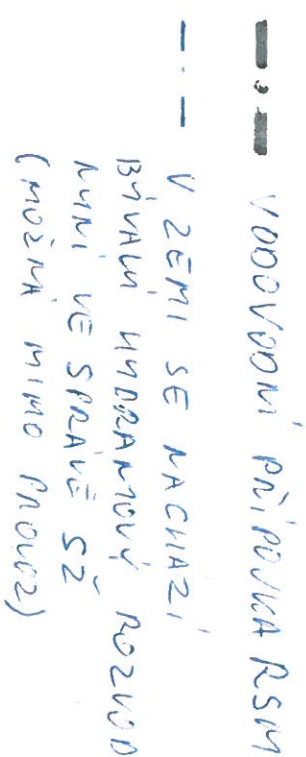 VODOVODNÍ PŘÍPOJKA RSM
V ZEMI SE NACHÁZÍ
BÝVALÝ HYDRANTOVÝ ROZVOD
NYNÍ VE SPRÁVĚ SŽ
(MOŽNÁ MIMO PROVOZ)